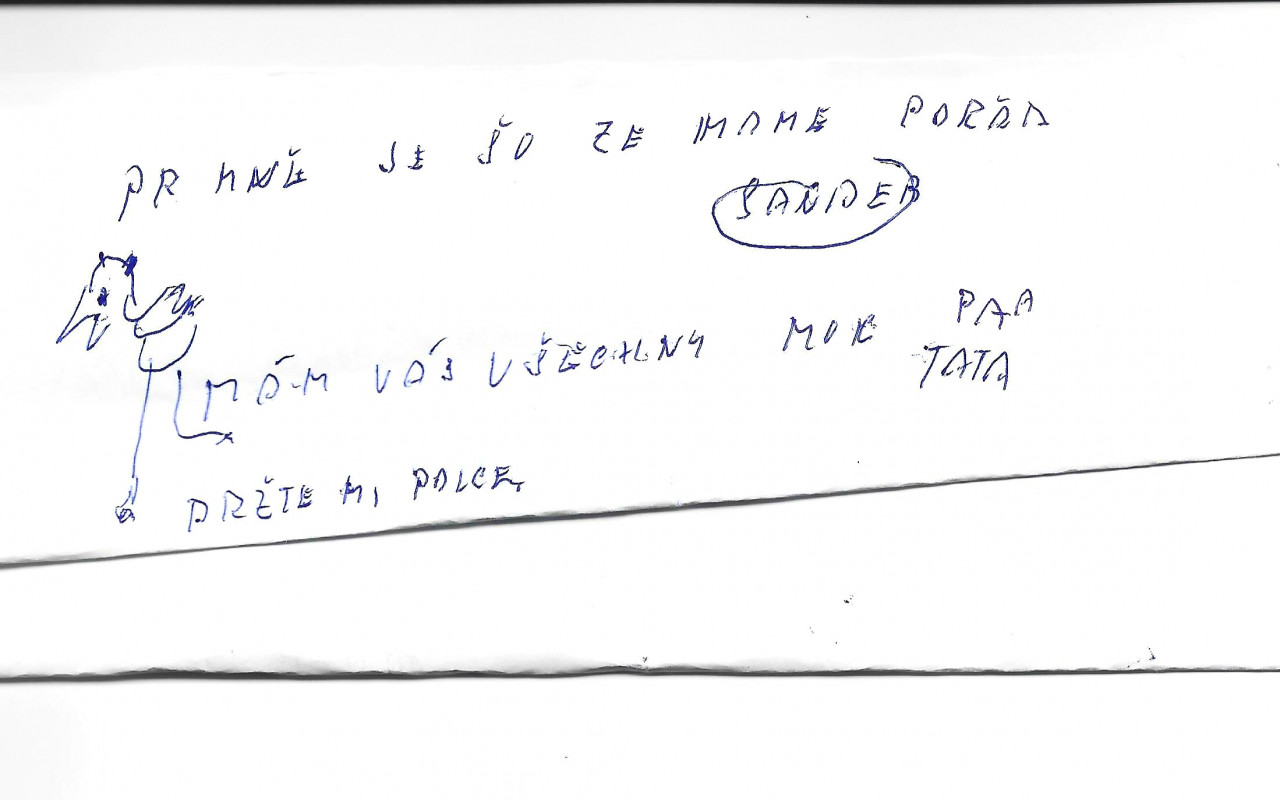 PR MNĚ JE ŠO ZE MAME POŘÁD
MÁM VÁS VŠECHNY MOC PAA
TATA
DRŽTE MI PALCE,